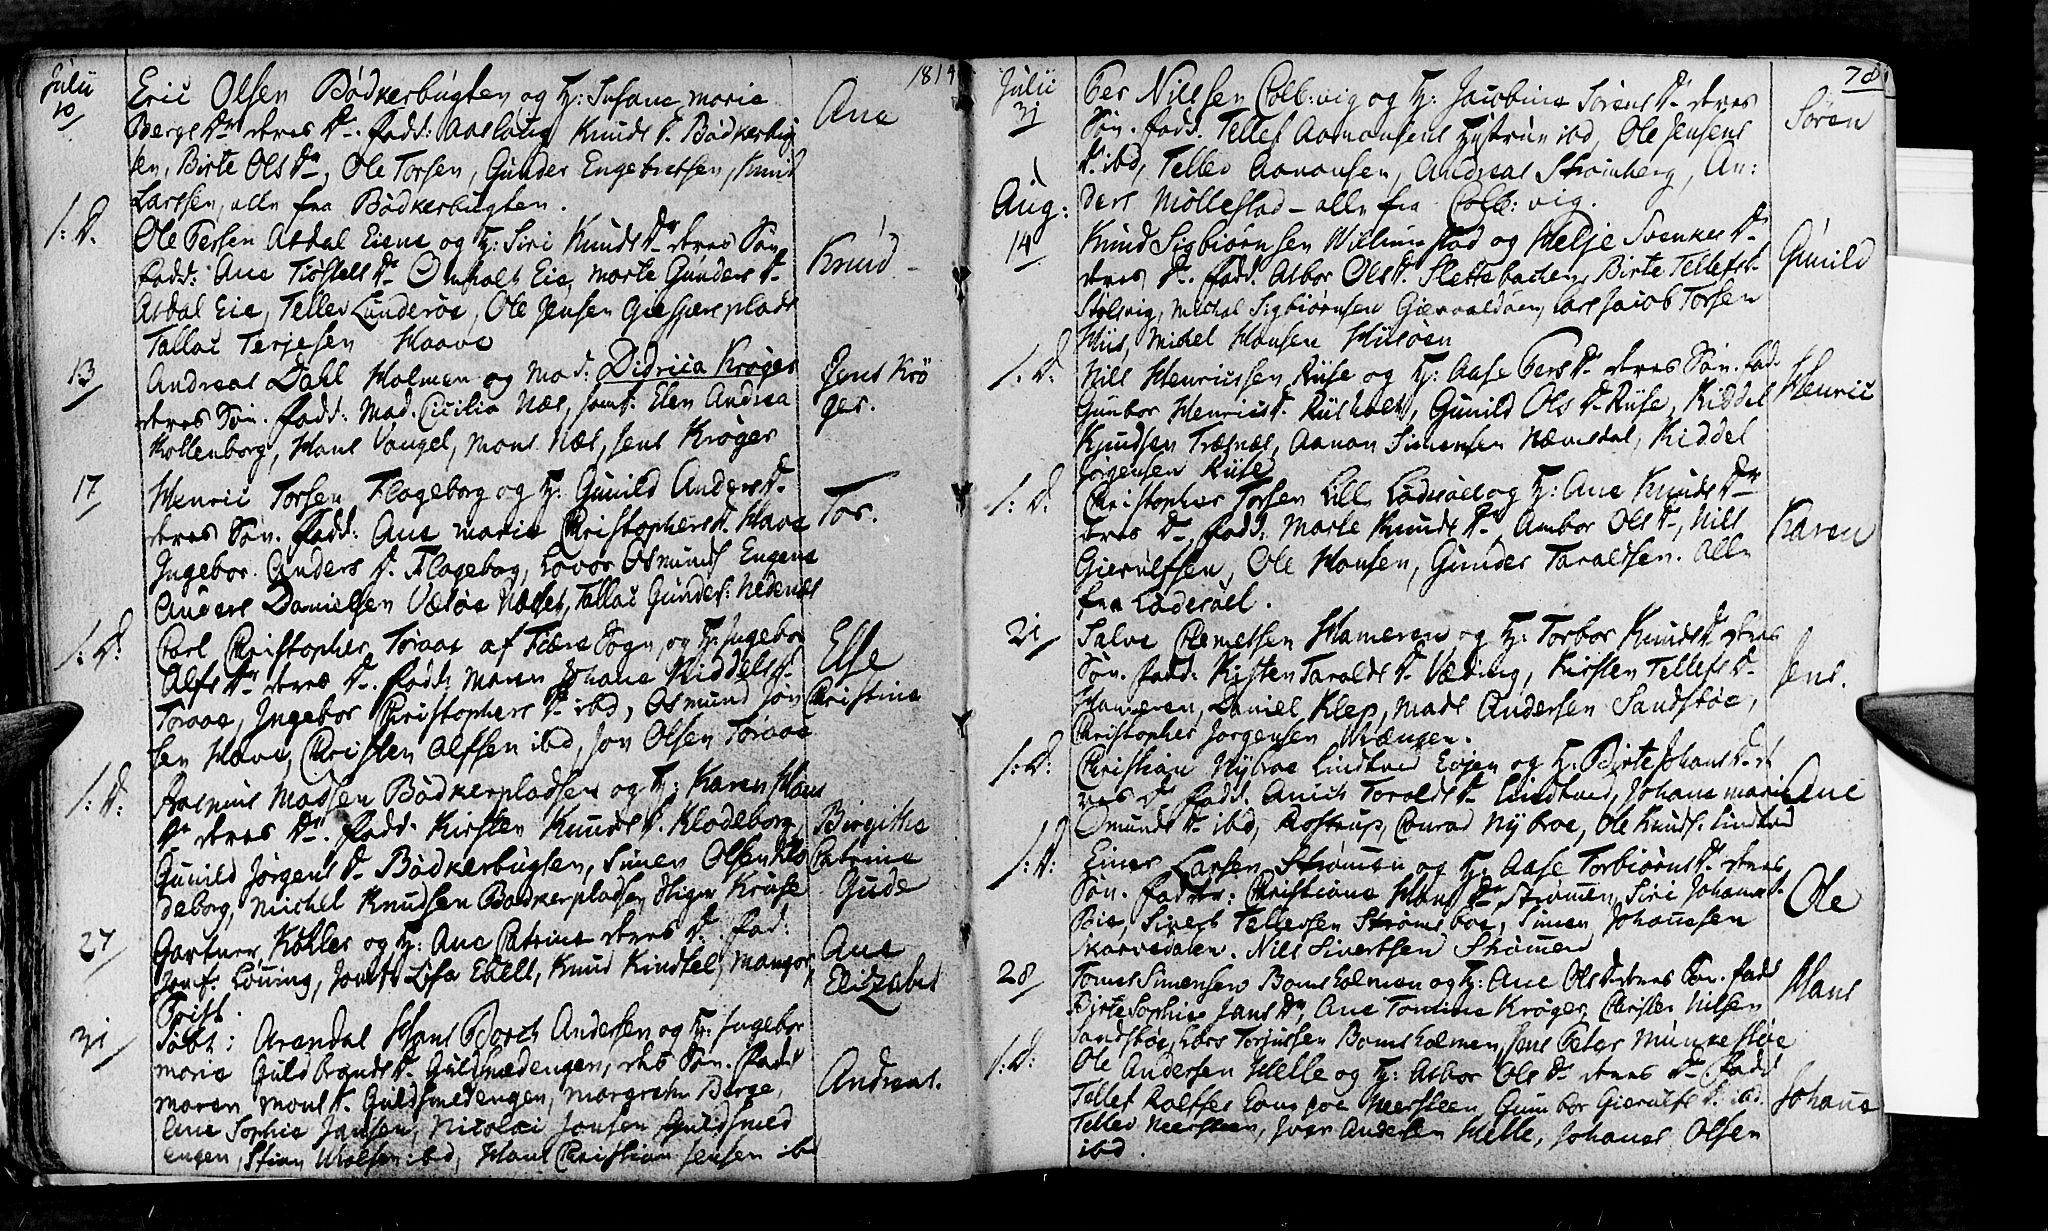 1814
Julii
10
Eric Olsen Bödkerbugten og H: Susane Marie
Bergs Dr. deres Dr. fadd: Aaslaug Knuds Dr. Bödkerbug
ten, Birte Ols Dr, Ole Torsen, Gunder Engebretsen, Knud
Larssen, alle fra Bödkerbugten.
Ane
1:D.
Ole Persen Asdal Eiene og H: Siri Knuds Dr deres Sön
fadd: Ane Omholt Eie, Marte Gunders Dr.
Asdal Eie, Tellev Lunderöe, Ole Jensen
Tallac Terjesen Haave
Knud
13
Andreas Dahl Holmen og Mad: Didrica Kröger
deres Sön. fadd: Mad. Cicilia Næs, Jomf. Elen Andrea
Kollenborg, Hans Vangel, Mons Næs, Jens Kröger
Jens Krö
ger.
17
Henric Torsen Flageborg og H: Gunild Anders Dr.
deres Sön. fadd: Ane Marie Christophers Dr. Have
Ingebor Anders Dr. Flageborg, Lovor Osmunds Engene
Anders Danielsen Næset, Tallac Gunders: Nedenæs
Tor.
1:D:
Carl Christopher Toraae af Fiære Sogn, og H: Ingebor
Alfs Dr deres Dr. fadd: Maren Johane Kiddels Dr.
Toraae, Ingebor Christophers Dr ibid, Osmund Jön
sen Have, Christen Alfsen ibd, Jon Olsen Toraae
Else
Christine
1:D:
Rasmus Madsen Bödkerpladsen og H: Karen Hans
Dr deres Dr. fadd: Kirsten Knuds Dr. Klodeborg,
Gunild Jörgens Dr. Bödkerbugten, Simen Olsen Klo
deborg, Michel Knudsen Bödkerpladsen, Kruse
Birgithe
Catrine
Gude
27
Gartner Köhler og H: Ane Catrine deres Dr. fad:
Jomf. Löning, Jomfr. Lisa Ebell, Knud Kindtel, Mangor
Toist.
Ane
Elizabet
31
Töbt: Arendal Hans Borch Andersen og H: Ingebor
Marie Guldbrands Dr. Guldsmedengen, Sön. fadd
Maren Mons Dr. Guldsmedengen, Margrethe Berge,
Ane Sophie Jansen, Nicolai Jonsen Guldsmed
engen, Stian ibid, Hans Christian Jensen ibd
Andreas.
78
Julii
31
Per Nilssen Colb:vig og H: Jacobine Sörens Dr. deres
Sön. fadd. Tellef Aanonsens Hustrue ibd, Ole Jensens
Dr. ibd, Tellev Aanonsen, Andreas Strömberg, An:
ders Möllestad – alle fra Colb:vig.
Sören
Aug:
14
Knud Sigbiörnsen og Helje Svenkes Dr
deres Dr. fadd. Asbor Ols Dr. Slettebacken, Birte Tellefs Dr.
Stölsvig, Michel Sigbiörnsen Giervoldöen, Lars Jacob Torsen
Huus, Michel Hansen Husöen
Gunild
1:D:
Nils Henricsen Riise og H: Aase Pers Dr. deres Sön. fad:
Gunbor Henrics Dr. Riisholt, Gunild Ols Dr. Riise, Kiddel
Knudsen Trægnæs, Aanon Simonsen Næversdal, Kiddel
Jörgensen Riise
Henric
1:D.
Christopher Torsen Lill Lödesöel og H: Ane Knuds Dr
deres Dr. fadd: Marte Knuds Dr, Ambor Ols Dr, Nils
Gierulfsen, Ole Hansen, Gunder Taraldsen. alle
fra Lödesöel.
Karen
21
Salve Clemetsen Hameren og H: Torbor Knuds Dr. deres
Sön. fadd. Kirsten Taralds Dr. Væding, Kirsten Tellefs Dr.
Hameren, Daniel Klep, Mads Andersen Sandstöe,
Christopher Jörgensen Wrængen.
Jens.
1:D:
Christian Nyboe Lindtved Eiesen og H: Birte Johans Dr. de
res Dr. fadd. Anich Taralds Dr. Lindtved, Johane Marie
Omunds Dr. ibid, Rostrup, Conrad Nyboe, Ole Knuds: Lindtved
Ane
1:D:
Einer Larsen Strömen og H: Aase Torbiörns Dr. deres
Sön. faddr: Christiane Hans Dr. Strömen, Siri Johannes Dr.
Boie, Sivert Tellefsen Strömsboe, Simen Johannesen
Skarvedalen. Nils Sivertsen Strömen
Ole
28
Tomas Simensen Bomsholmen og H: Ane Ols Dr. deres Sön. fadd
Birte Sophie Jans Dr, Ane Tomine Kröger, Christen Nilsen
Sandstöe, Lars Torjussen Bomsholmen, Jens Peter Munkestöe
Hans
1:D:
Ole Andersen Helle og H: Asbor Ols Dr deres Dr. fadd
Tellef Neersteen, Gumbor Gierulfs Dr. ibd.
Tellev Neersteen, Iver Andersen Helle, Johanes Olsen
ibd.
Johane